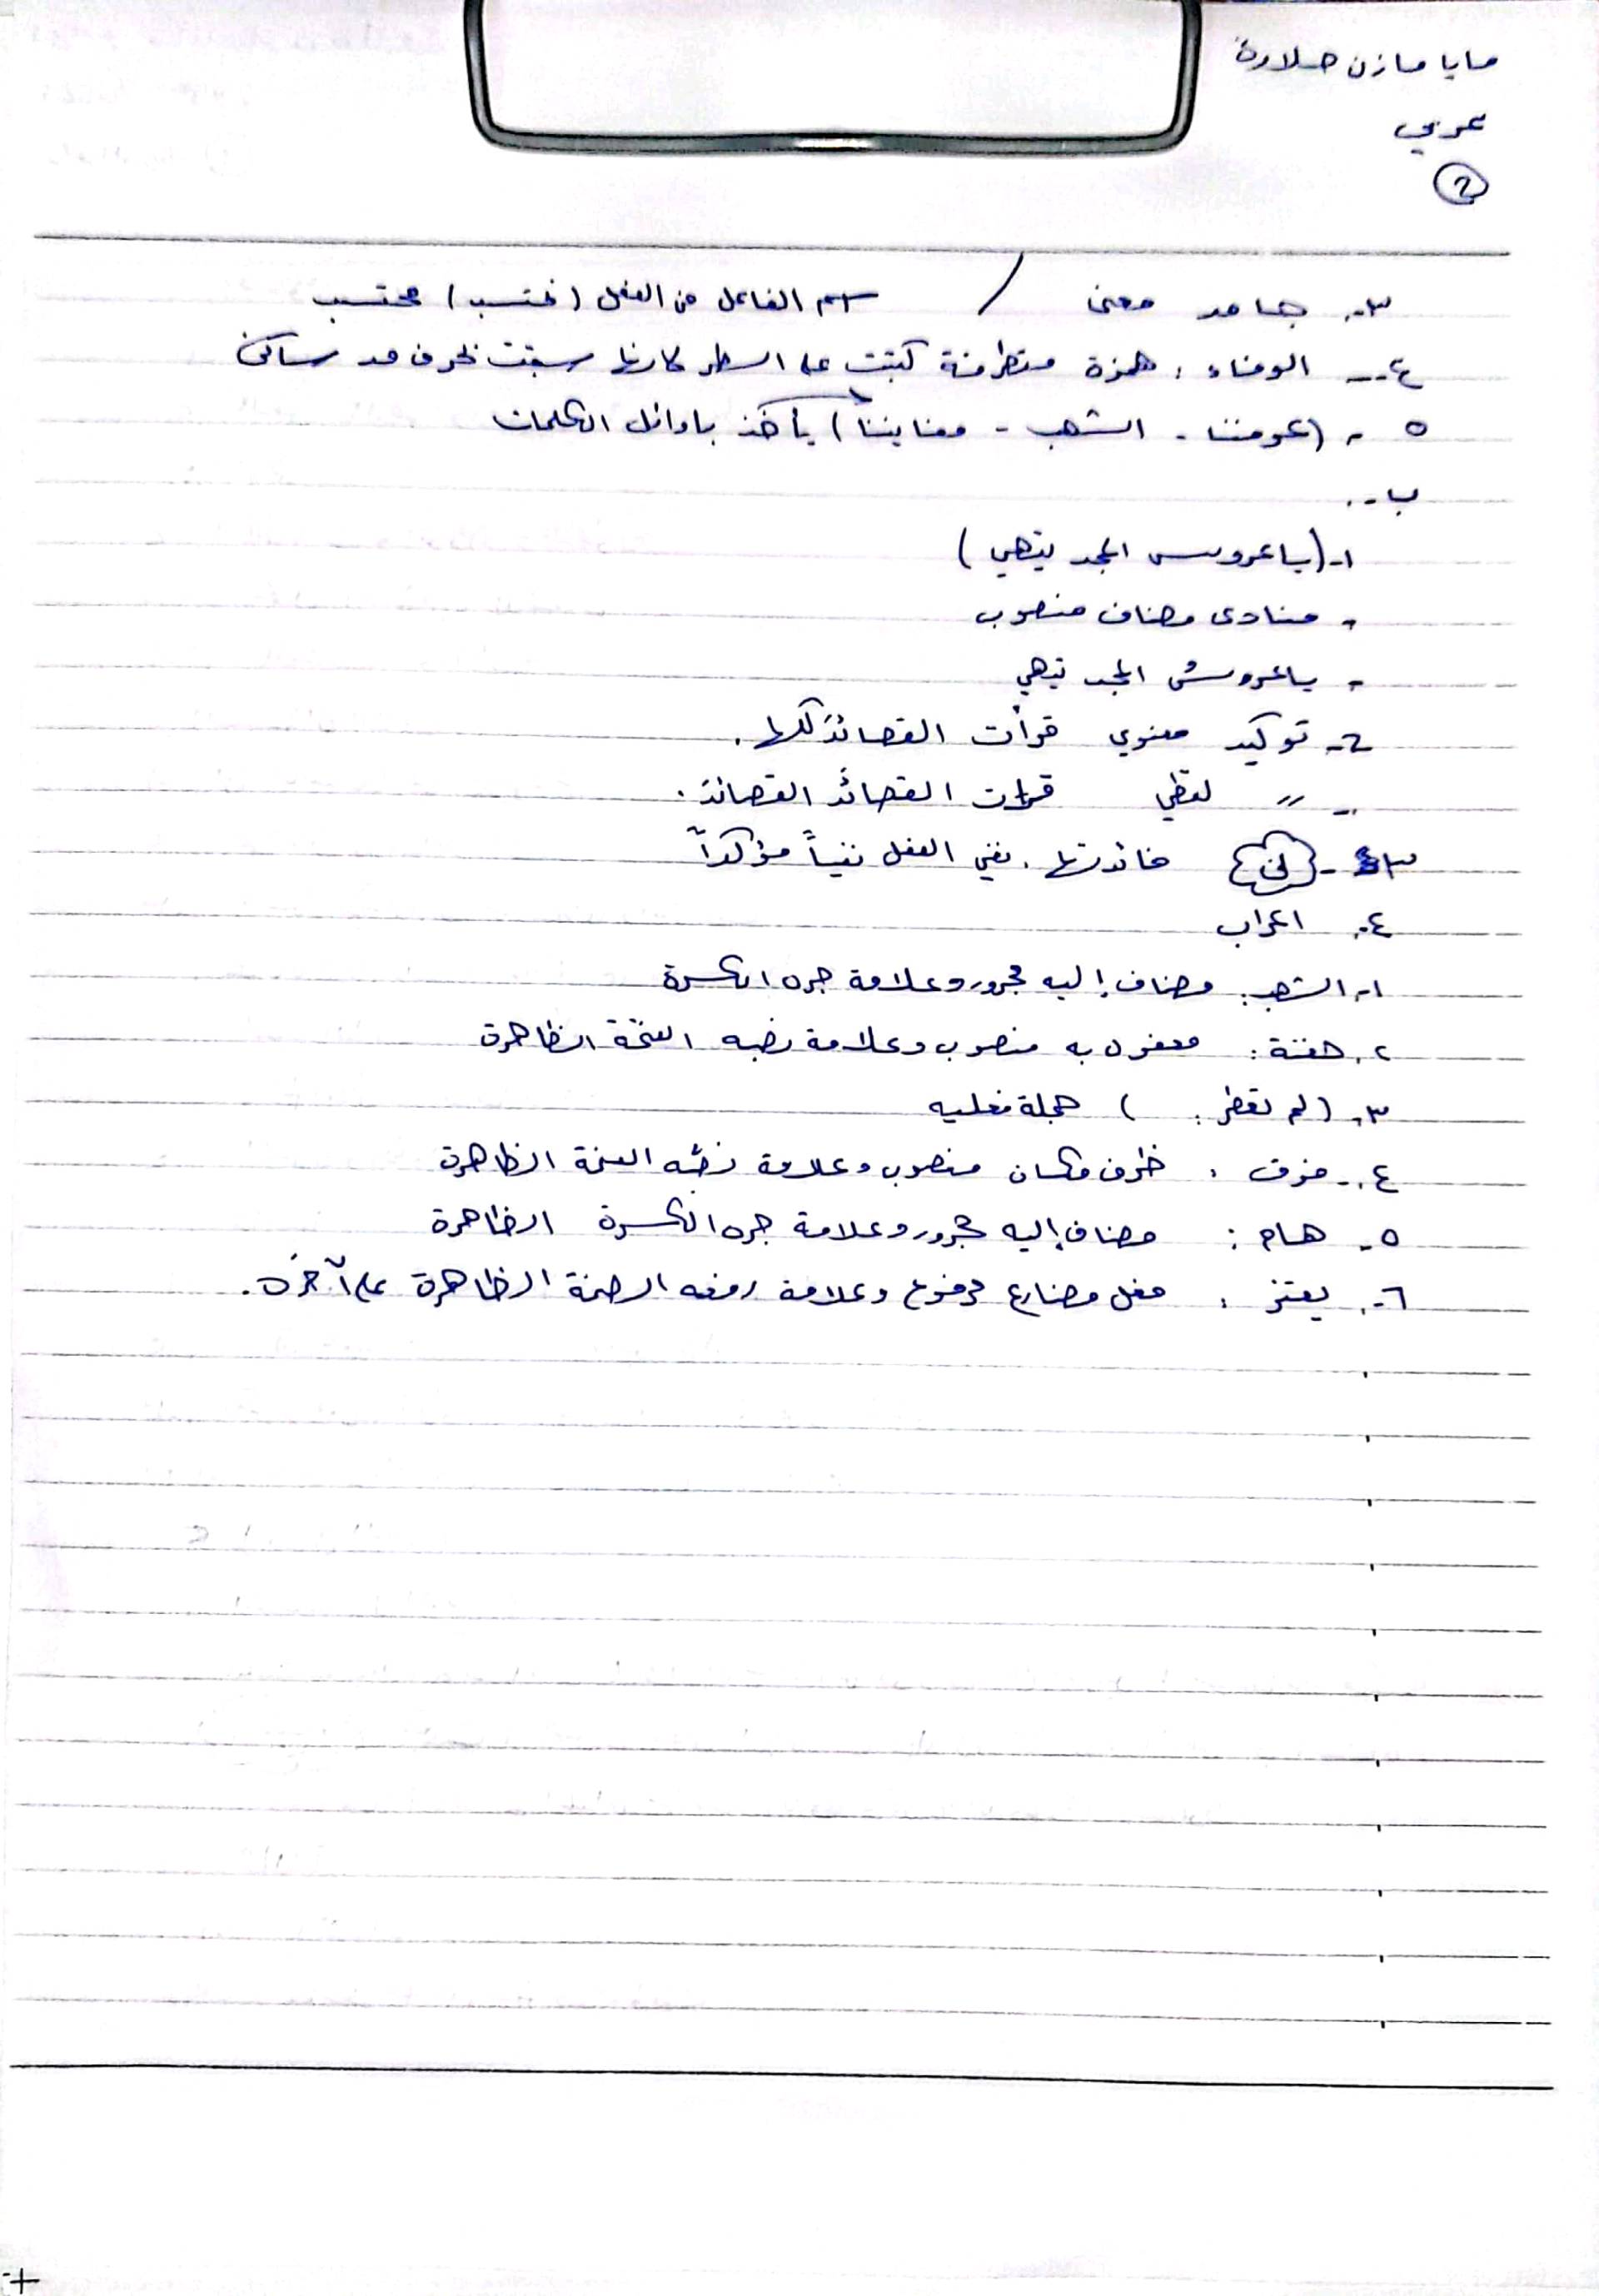 مايا مازن حلاوة
عربي
2
٣- جامد معنى / اسم الفاعل من الفعل (نحتسب) محتسب
٤- الوفاء : همزة متطرفة كتبت على السطر لانها سبقت بحرف مد ساكن
٥ - (عومتنا - الشهب - معاييننا) يأخذ باوائل الكلمات
ب-
١- (يا عروس المجد تيهي)
- منادى مضاف منصوب
- يا عروسَ المجد تيهي
2- توكيد معنوي قرأت القصائدَ كلها .
- // لفظي قرات القصائدَ القصائدَ .
٣- {لن} فائدتها . نفي الفعل نفياً مؤكداً
٤- اعراب
١- الشهب : مضاف إليه مجرور وعلامة جره الكسرة
٢- هفتة : مفعول به منصوب وعلامة نصبه الفتحة الظاهرة
٣- (لم تفطر : ) جملة فعليه
٤- فوق : ظرف مكان منصوب وعلامة نصبه الفتحة الظاهرة
٥- هام : مضاف إليه مجرور وعلامة جره الكسرة الظاهرة
٦- يعتز : فعل مضارع مرفوع وعلامة رفعه الضمة الظاهرة على آخره .